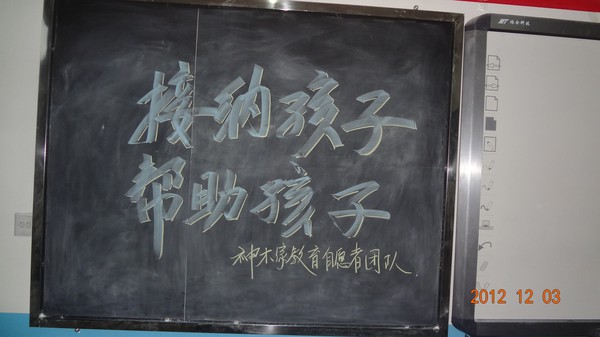 接纳孩子
帮助孩子
神木家教育自愿者团队
2012 12 03